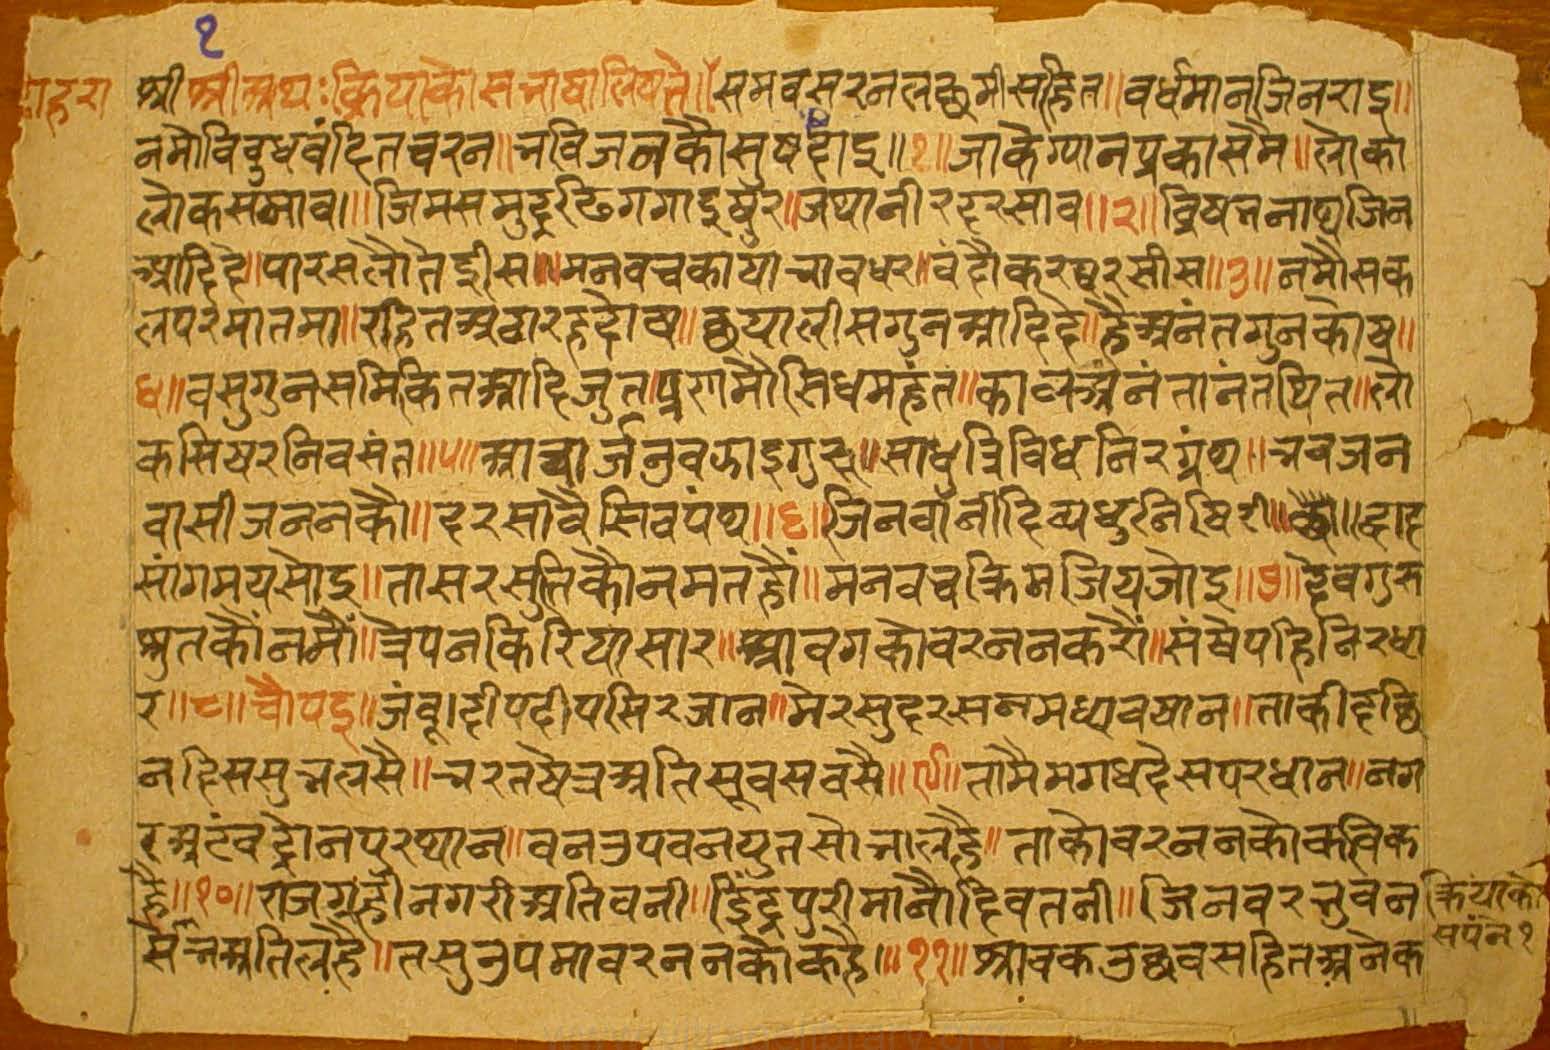 १
दोहरा
श्री श्रीअथः क्रियाकोसभाषालिष्यते॥ समवसरनलछमीसहित॥ वर्धमानजिनराइ॥
नमौविवुधवंदितचरन॥ भविजनकौसुषदाइ॥१॥ जाकैग्यानप्रकासमै॥ लोका
लोकसमाव॥ जिमसमुद्रढिगगाइषुर॥ जथानीरदरसाव॥२॥ व्रिषभनाथजिन
आदिदे॥ पारसलौतेईस॥ मनवचकायाभावधर॥ वंदौकरधरसीस॥३॥ नमौसक
लपरमातमा॥ रहितअठारहदोष॥ छयालीसगुनआदिदे॥ हैअनंतगुनकोष॥
४॥ वसुगुनसमिकितआदिजुत॥ प्रणमौसिधमहंत॥ कालअनंतानंतथित॥ लो
कसिषरनिवसंत॥५॥ आचार्जउवझाइगुरु॥ साधुत्रिविधनिरग्रंथ॥ भवजन
वासीजननकौ॥ दरसावैसिवपंथ॥६॥ जिनवांनीदिव्यधुनिषिरी॥ द्वाद
सांगमयसोइ॥ तासरसुतिकौनमतहौं॥ मनवचक्रिमजियजोइ॥७॥ देवगुरु
श्रुतकौंनमौं॥ त्रेपनकिरियासार॥ श्रावगकोवरननकरौं॥ संषेपहिनिरधा
र॥८॥ चौपइ॥ जंवूदीपदीपसिरजान॥ मेरसुदरसनमध्यवषान॥ ताकीदछि
नदिससुभलसै॥ भरतषेत्रअतिसूवसवसै॥९॥ तामैमगधदेसपरधान॥ नग
रअटंवद्रोनपुरथान॥ वनउपवनयुतसोभालहै॥ ताकोवरननकोकविक
है॥१०॥ राजगृहीनगरीअतिवनी॥ इंद्रपुरीमानौदिवतनी॥ जिनवरभुवन
क्रियाको
सपंने१
सभअतिलहै॥ तसुउपमावरननकोकहै॥११॥ श्रावकउछवसहितअनेक